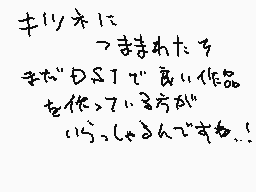 キツネに
つままれたヲ
まだDSIで良い作品
を作っている方が
いらっしゃるんですね..!